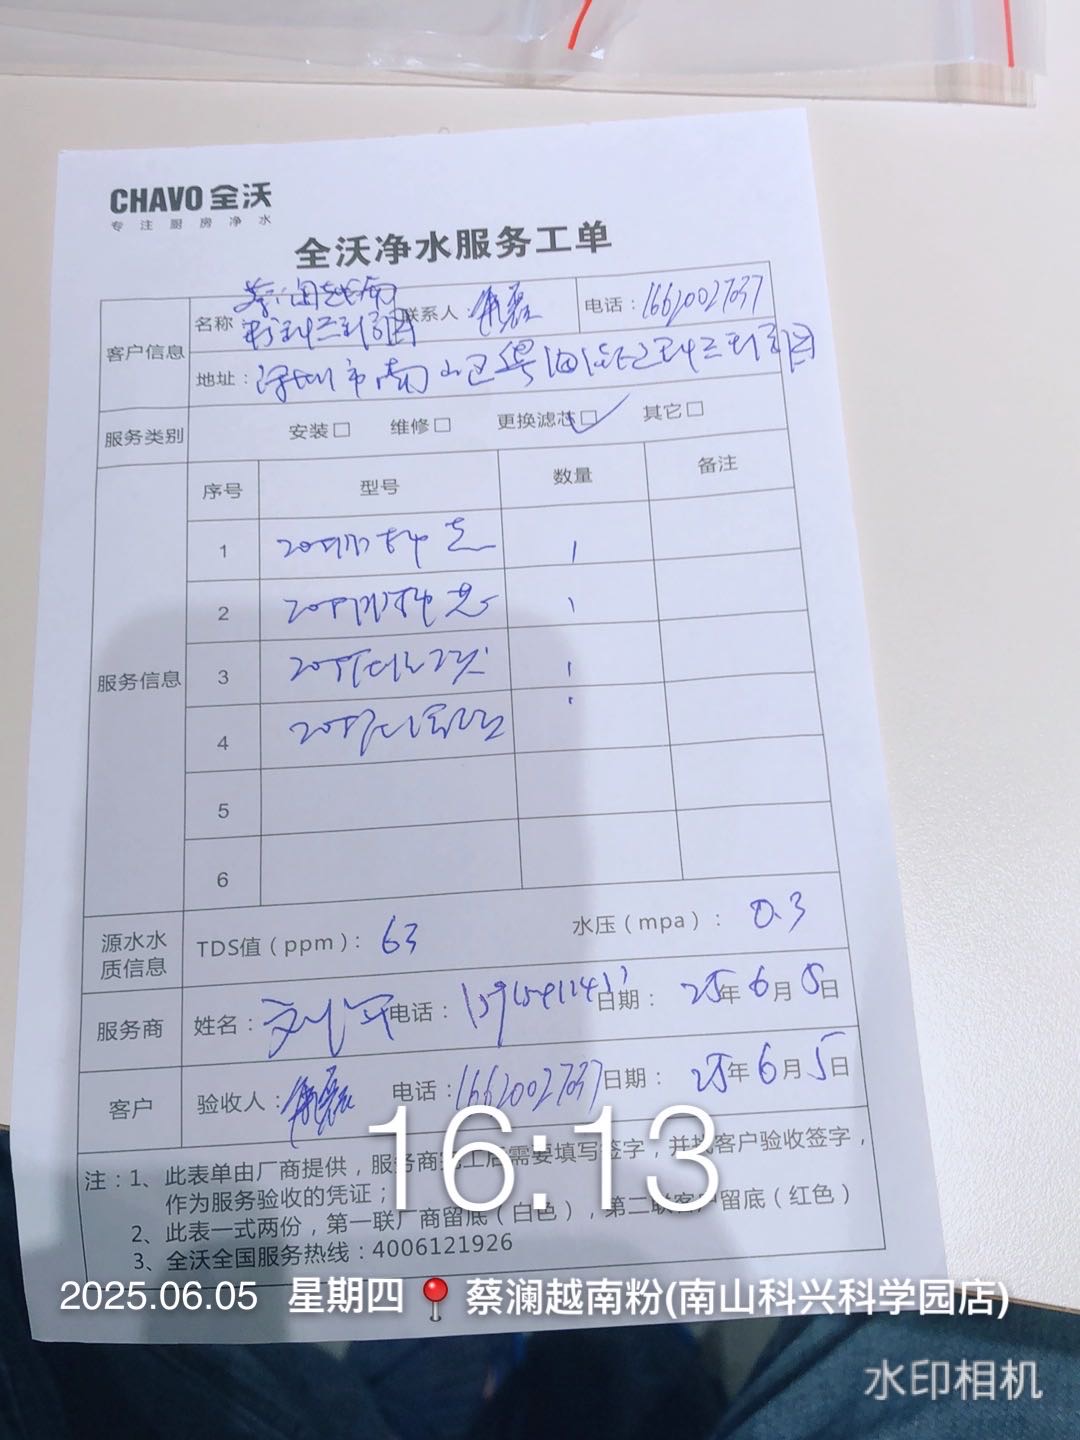 CHAVO 全沃
专注厨房净水
全沃净水服务工单
客户信息
名称 蔡澜越南粉科兴科学园 联系人 电话：16620027037
地址：深圳市南山区粤海街道科兴科学园
服务类别 安装□ 维修□ 更换滤芯□✓ 其它□
服务信息
序号 型号 数量 备注
1 1
2 1
3 1
4
5
6
源水水质信息 TDS值（ppm）：63 水压（mpa）：0.3
服务商 姓名： 电话： 日期：25年6月5日
客户 验收人： 电话：16620027037 日期：25年6月5日
16:13
注：1、此表单由厂商提供，服务商完工后需要填写签字，并找客户验收签字，
作为服务验收的凭证；
2、此表一式两份，第一联厂商留底（白色），第二联客户留底（红色）
3、全沃全国服务热线：4006121926
2025.06.05 星期四 蔡澜越南粉(南山科兴科学园店)
水印相机